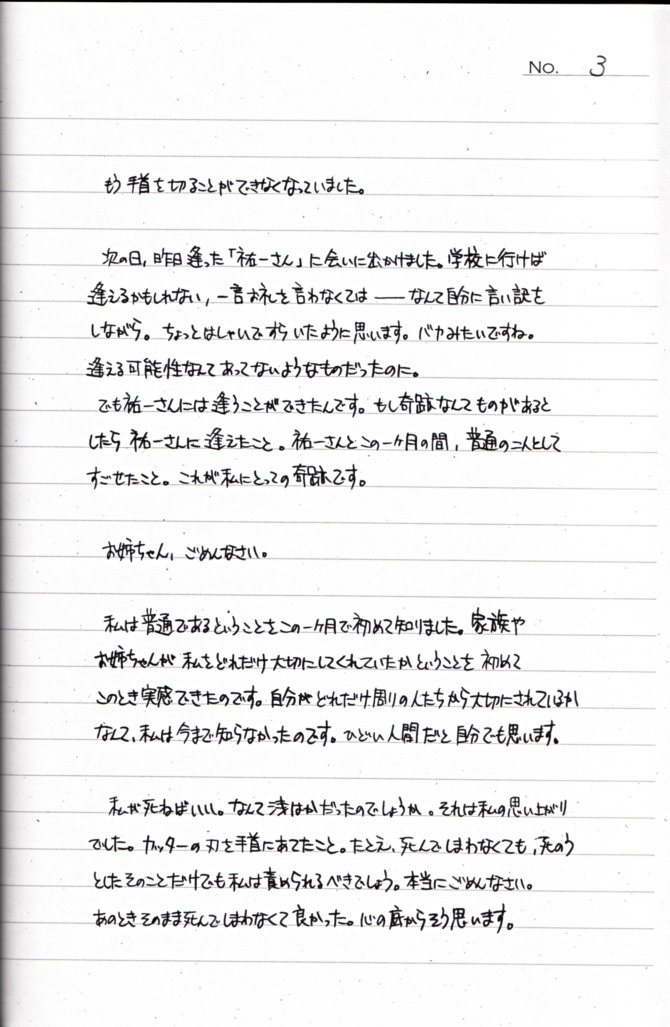 No. 3
もう手首を切ることができなくなっていました。
次の日、昨日逢った「祐一さん」に会いに出かけました。学校に行けば
逢えるかもしれない、一言お礼を言わなくては ―― なんて自分に言い訳を
しながら。ちょっとはしゃいですらいたように思います。バカみたいですね。
逢える可能性なんてあってないようなものだったのに。
でも祐一さんには逢うことができたんです。もし奇跡なんてものがあると
したら祐一さんに逢えたこと。祐一さんとこの一ヶ月の間、普通の二人として
すごせたこと。これが私にとっての奇跡です。
お姉ちゃん、ごめんなさい。
私は普通であるということをこの一ヶ月で初めて知りました。家族や
お姉ちゃんが私をどれだけ大切にしてくれていたかということを初めて
このとき実感できたのです。自分がどれだけ周りの人たちから大切にされているか
なんて、私は今まで知らなかったのです。ひどい人間だと自分でも思います。
私が死ねばいい。なんて浅はかだったのでしょうか。それは私の思い上がり
でした。カッターの刃を手首にあてたこと。たとえ、死んでしまわなくても、死のう
としたそのことだけでも私は責められるべきでしょう。本当にごめんなさい。
あのときそのまま死んでしまわなくて良かった。心の底からそう思います。